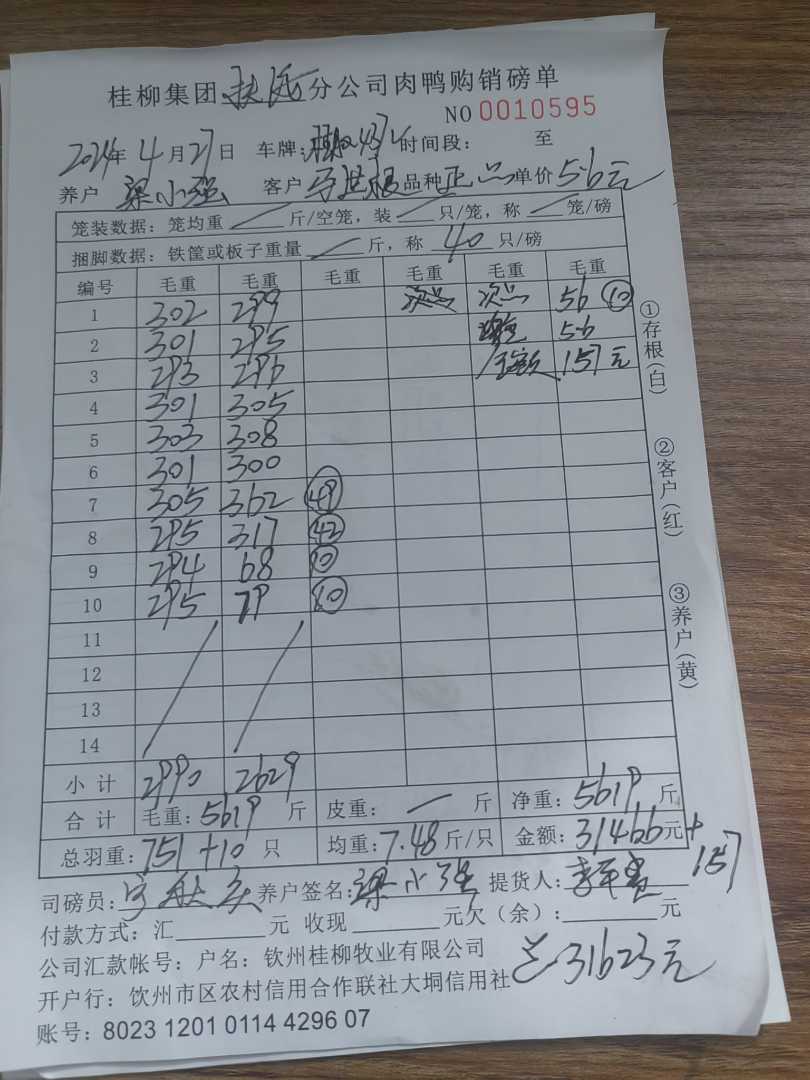 桂柳集团 分公司肉鸭购销磅单
NO 0010595
2024年4月27日 车牌: 时间段: 至
养户 梁小强 客户 品种 正品 单价 5.6元
笼装数据: 笼均重 / 斤/空笼, 装 / 只/笼, 称 / 笼/磅
捆脚数据: 铁筐或板子重量 / 斤, 称 40 只/磅
编号 毛重 毛重 毛重 毛重 毛重 毛重
1 302 299 次品 次品 56 ⑩
2 301 295 5.6
3 293 296 金额 157元
4 301 305
5 303 308
6 301 300
7 305 362 ㊾
8 295 317 ㊷
9 294 68 ⑩
10 295 79 ⑩
11
12
13
14
小计 2990 2629
合计 毛重: 5619 斤 皮重: — 斤 净重: 5619 斤
总羽重: 751+10 只 均重: 7.48 斤/只 金额: 31466元+157
司磅员: 养户签名: 梁小强 提货人:
付款方式: 汇 元 收现 元欠(余): 元
公司汇款帐号: 户名: 钦州桂柳牧业有限公司
总31623元
开户行: 饮州市区农村信用合作联社大垌信用社
账号: 8023 1201 0114 4296 07
①存根(白)
②客户(红)
③养户(黄)